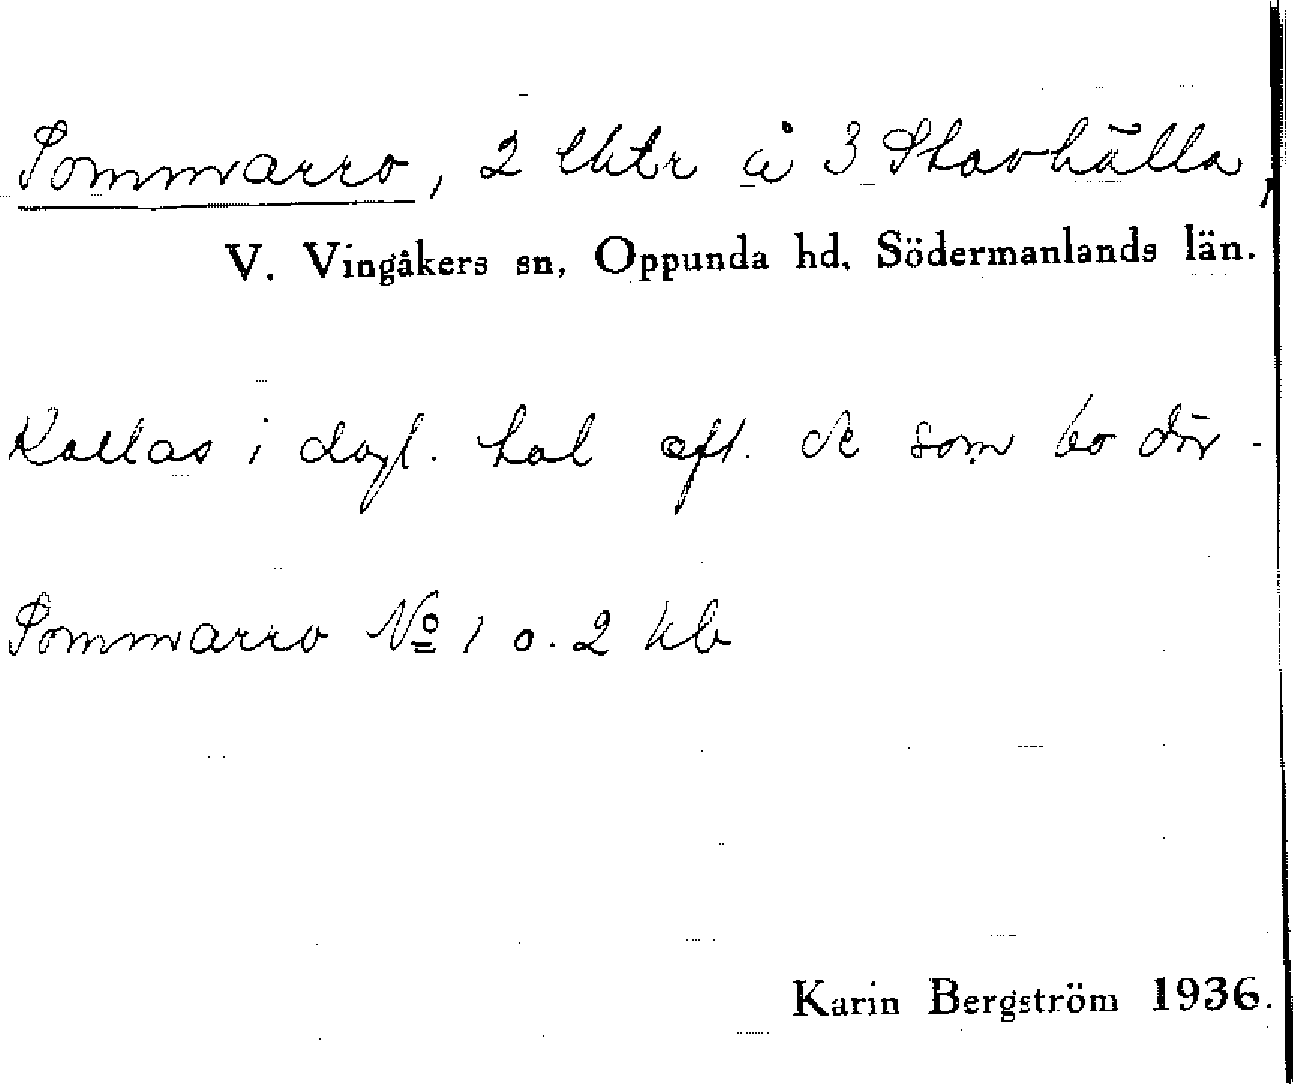 Sommarro, 2 lhtr å 3 Skavhälla,
V. Vingåkers sn, Oppunda hd. Södermanlands län.
Kallas i dagl. tal eft. de som bo där.
Sommarro No 1 o. 2 kb
Karin Bergström 1936.